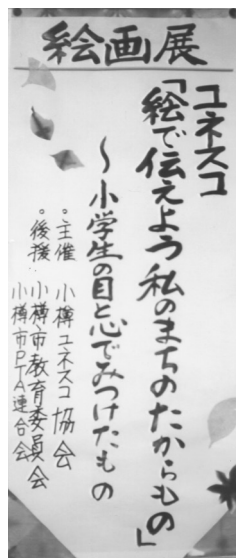 絵画展
ユネスコ
「絵で伝えよう私のまちのたからもの」
〜小学生の目と心でみつけたもの
。主催 小樽ユネスコ協会
。後援 小樽市教育委員会
小樽市PTA連合会